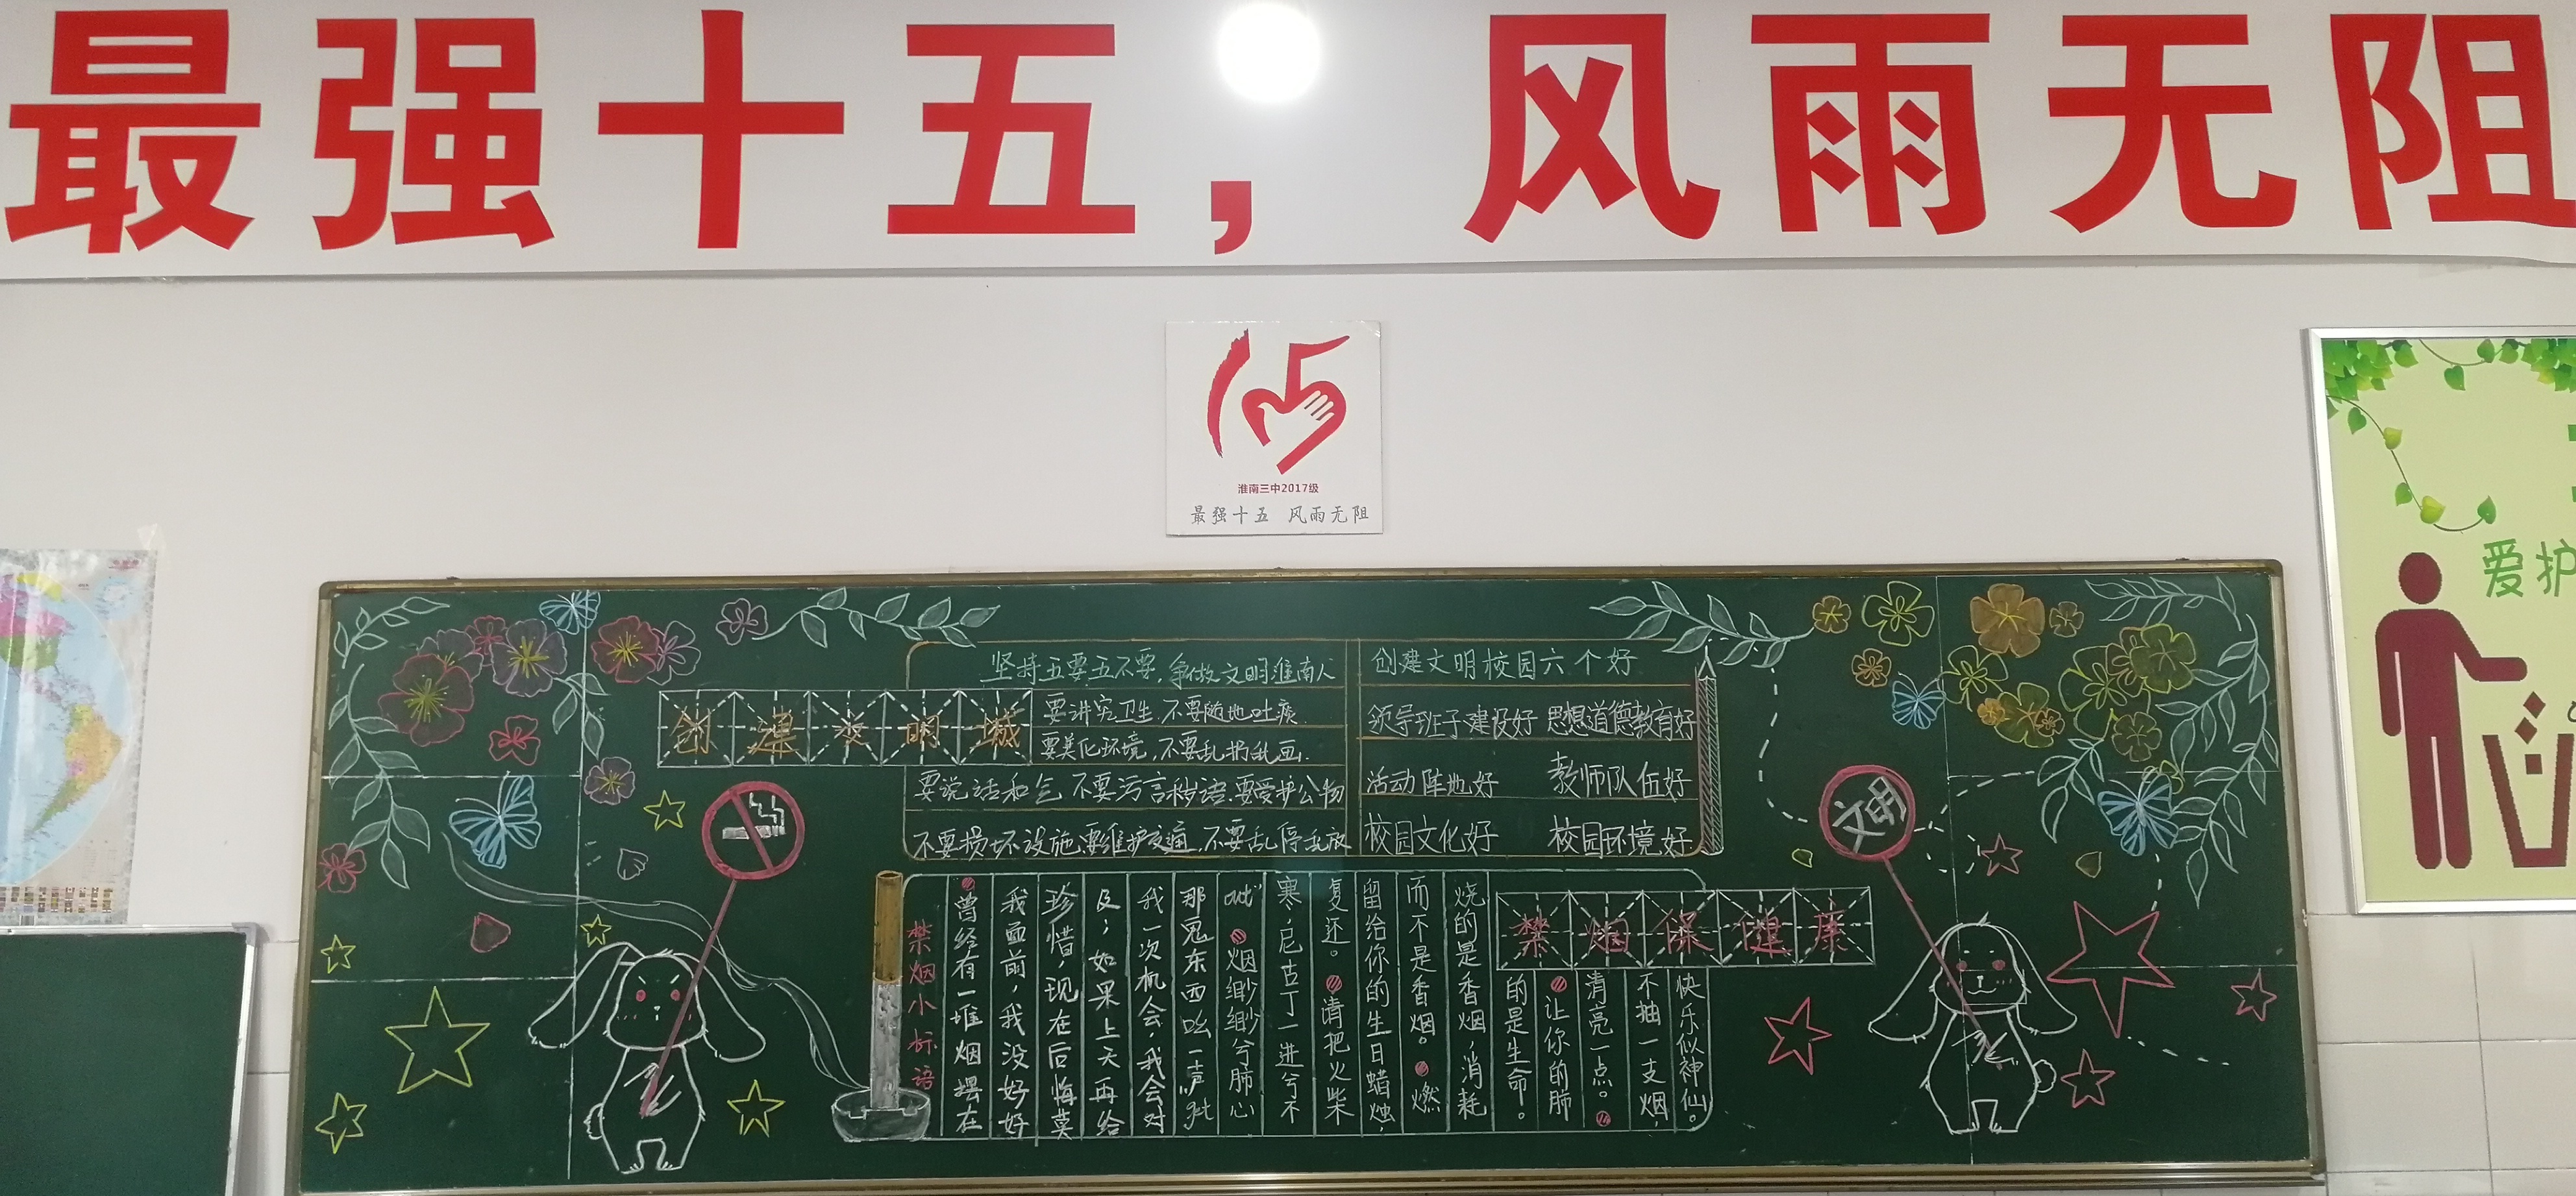 最强十五，风雨无阻
淮南三中2017级
最强十五 风雨无阻
爱护
坚持五要五不要，争做文明淮南人
创建文明城
要讲究卫生，不要随地吐痰
要美化环境，不要乱扔乱画.
要说话和气 不要污言秽语.要爱护公物
不要损坏设施.要维护交通，不要乱停乱放
创建文明校园六个好
领导班子建设好 思想道德教育好
活动阵地好 教师队伍好
校园文化好 校园环境好
文明
禁烟保健康
禁烟小标语
曾经有一堆烟摆在
我面前，我没好好
珍惜，现在后悔莫
及；如果上天再给
我一次机会，我会对
那鬼东西吆一声“get
out” 烟缈缈兮肺心
寒，尼古丁一进兮不
复还。请把火柴
留给你的生日蜡烛，
而不是香烟。燃
烧的是香烟，消耗
的是生命。
让你的肺
清亮一点。
不抽一支烟，
快乐似神仙。